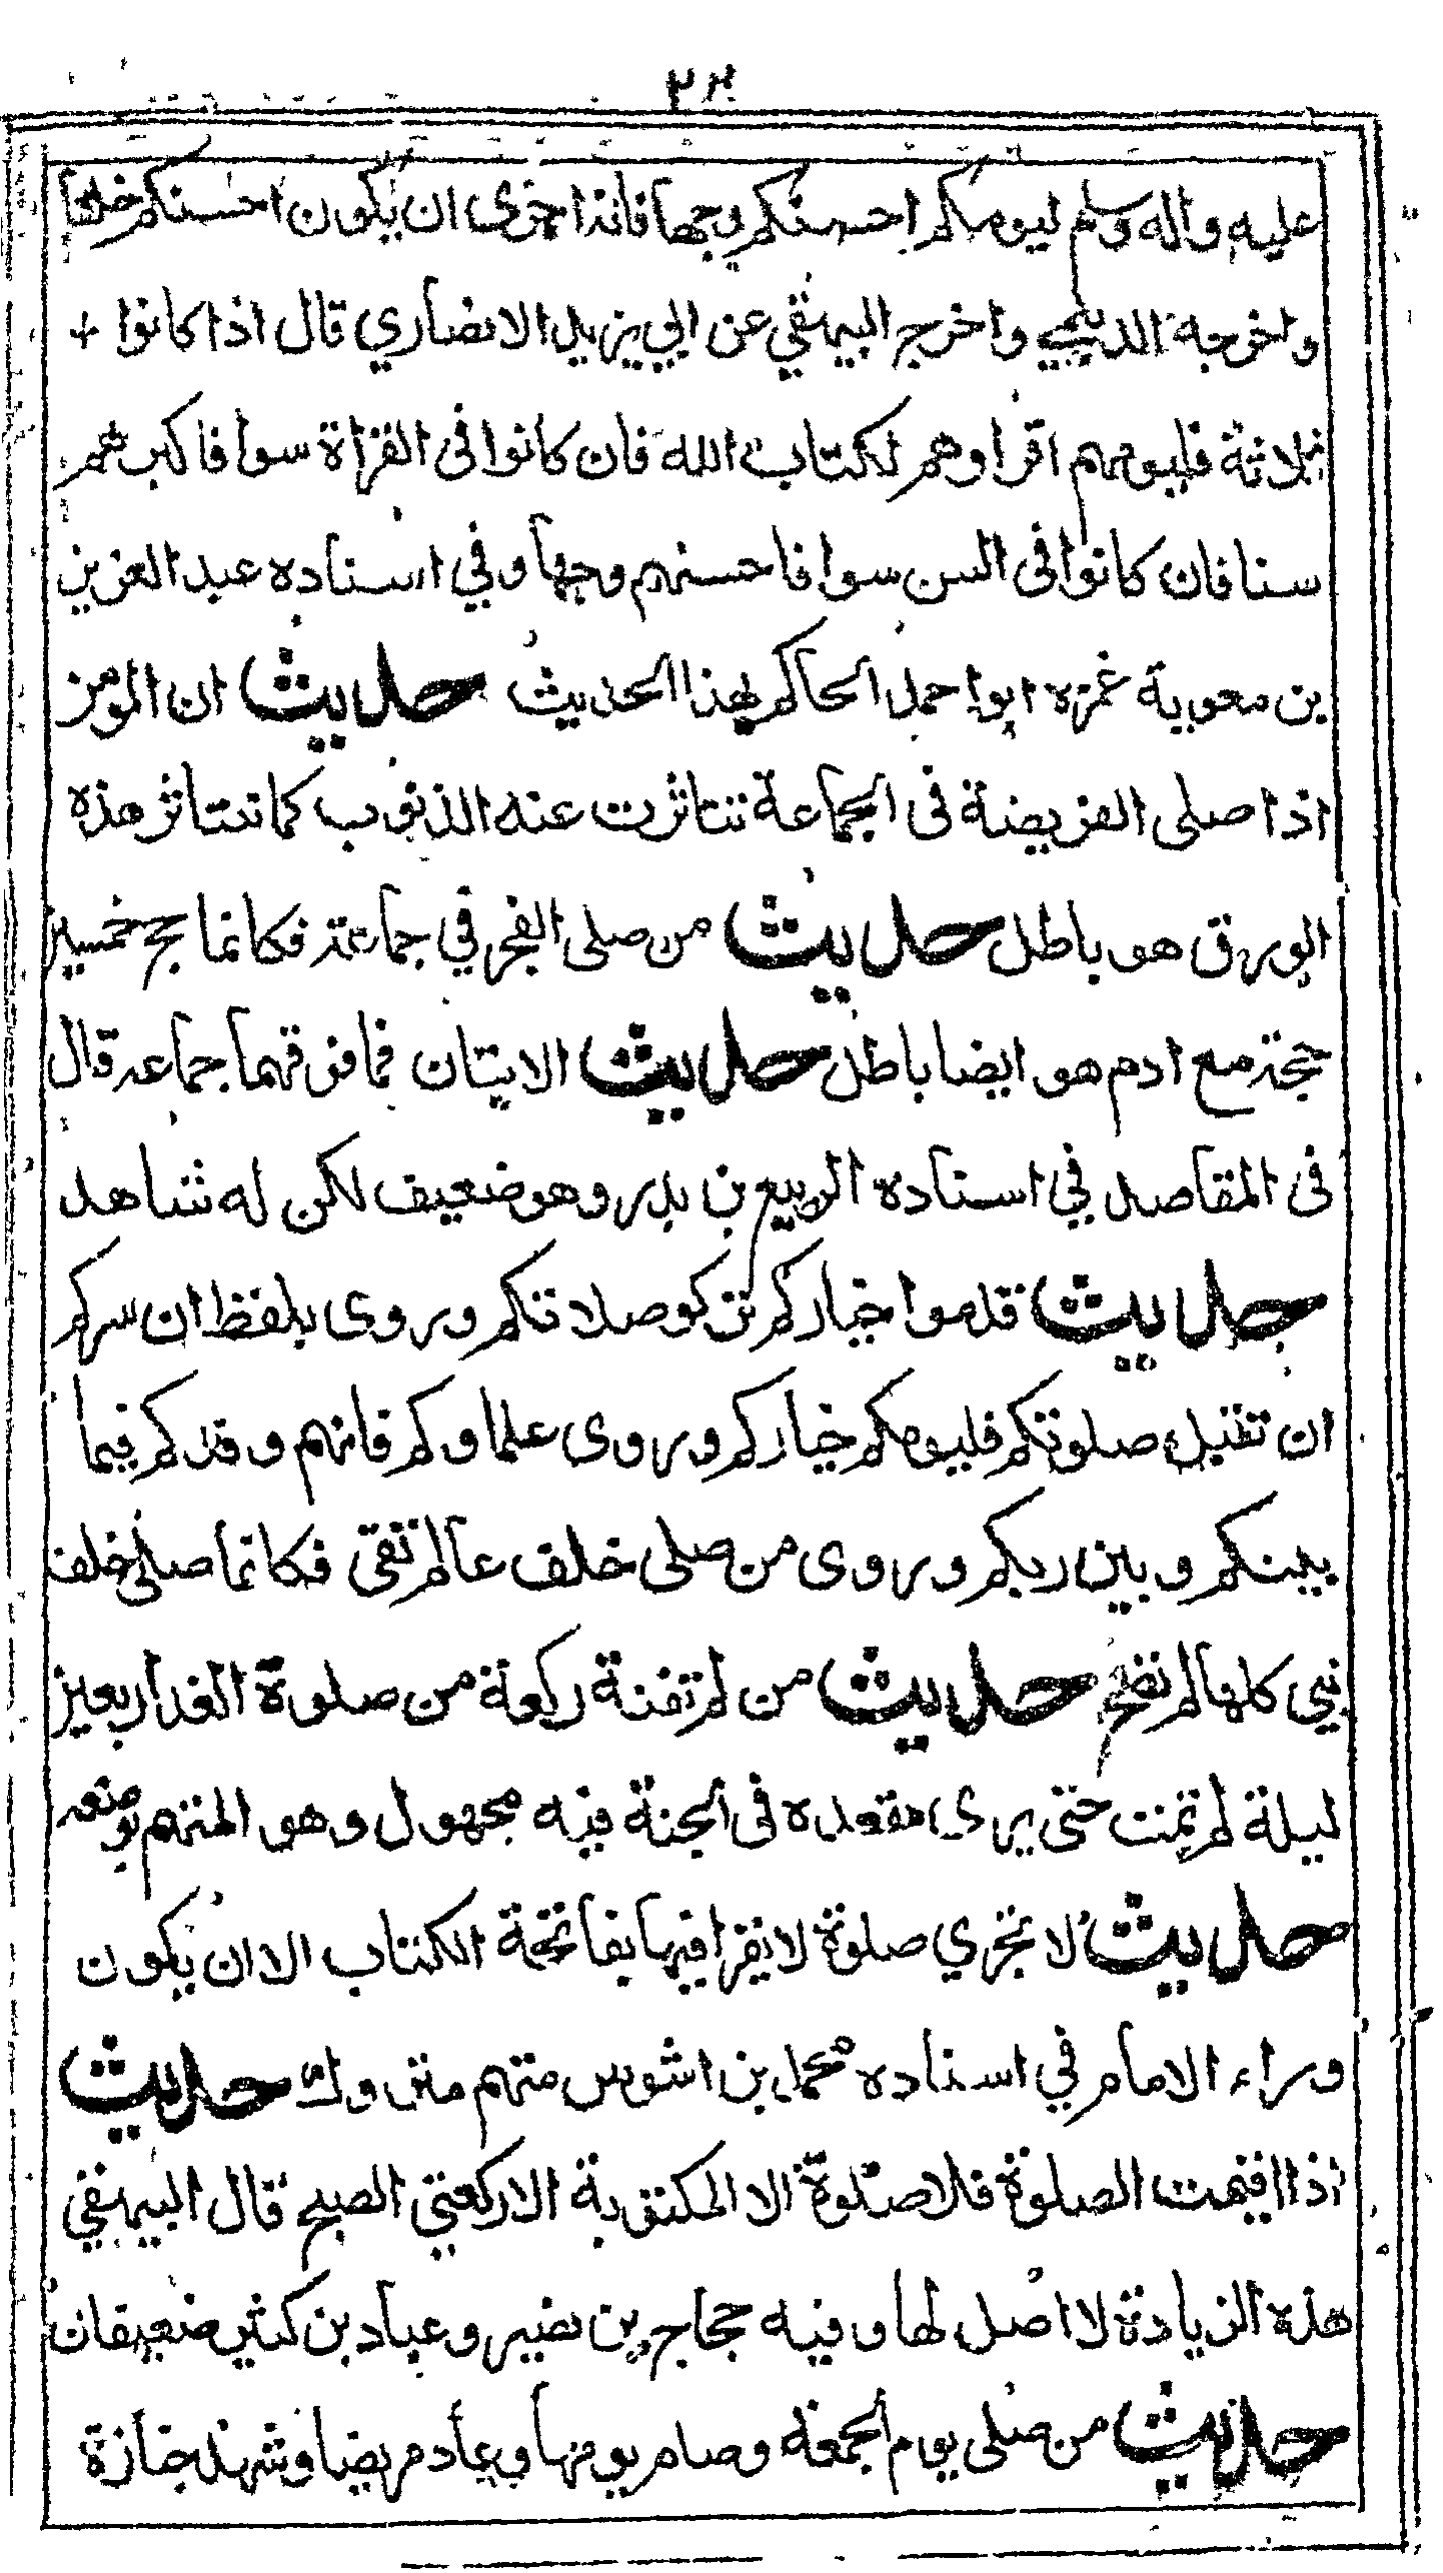 عليه واله وسلم ليومكم احسنكم وجها فانه احرى ان يكون احسنكم خلقا
واخرجه الديلمي واخرج البيهقي عن ابي يزيد الانصاري قال اذا كانوا
ثلاثة فليومهم اقراوهم لكتاب الله فان كانوا فى القراة سوا فاكبرهم
سنا فان كانوا فى السن سوا فاحسنهم وجها وفي اسناده عبد العزيز
بن معوية غمزه ابوا حمد الحاكم لهذا الحديث حديث ان المومن
اذا صلى الفريضة فى الجماعة تناثرت عنه الذنوب كما تتناثر هذه
الورق هو باطل حديث من صلى الفجر في جماعة فكانما حج خمسين
حجة مع ادم هو ايضا باطل حديث الاثنان فما فوقهما جماعه قال
فى المقاصد في اسناده الربيع بن بدر وهو ضعيف لكن له شاهد
حديث قدموا خياركم تزكو صلاتكم وروى بلفظ ان سركم
ان تقبل صلوتكم فليومكم خياركم وروى علماوكم فانهم وفدكم فيما
بينكم وبين ربكم وروى من صلى خلف عالم تقى فكانما صلى خلف
نبي كلها لم تصح حديث من لم تفته ركعة من صلوة الغداة اربعين
ليلة لم تمت حتى يرى مقعده فى الجنة فيه مجهول وهو المتهم بوضعه
حديث لا تجزي صلوة لا يقرا فيها بفاتحة الكتاب الا ان يكون
وراء الامام في اسناده محمد بن اشوس متهم متروك حديث
اذا اقيمت الصلوة فلا صلوة الا المكتوبة الا ركعتي الصبح قال البيهقي
هذه الزيادة لا اصل لها وفيه حجاج بن نصير وعباد بن كثير ضعيفان
حديث من صلى يوم الجمعة وصام يومها وعاد مريضا وشهد جنازة